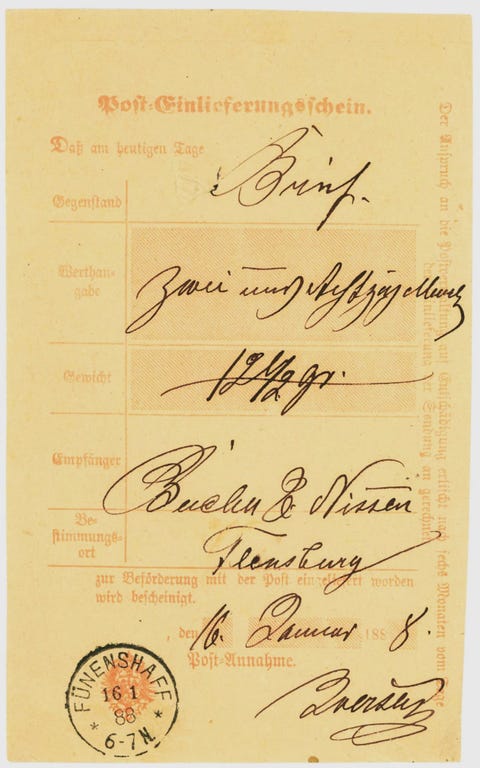 Post-Einlieferungsschein.
Daß am heutigen Tage
Gegenstand
Brief.
Werthan-
gabe
zwei und Achtzig Mark
Gewicht
12 1/2 gr.
Empfänger
& Nissen
Be-
stimmungs-
ort
Flensburg
zur Beförderung mit der Post eingeliefert worden
wird bescheinigt.
, den 16. Januar 1888.
Post-Annahme.
FÜNENSHAFF
16 1
88
* 6-7N. *
Der Anspruch an die Postverwaltung auf Entschädigung erlischt nach sechs Monaten vom Tage
der Einlieferung der Sendung an gerechnet.